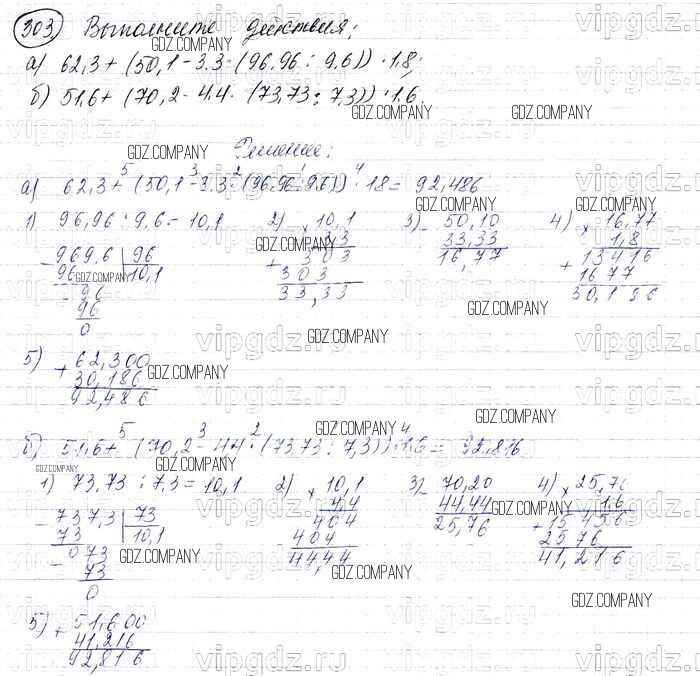 303. Выполните действия:
а) 62,3 + (50,1 - 3,3 · (96,96 : 9,6)) · 1,8;
б) 51,6 + (70,2 - 4,4 · (73,73 : 7,3)) · 1,6.
Решение:
а) 62,3 +⁵ (50,1 -³ 3,3 ·² (96,96 :¹ 9,6)) ·⁴ 1,8 = 92,486
1) 96,96 : 9,6 = 10,1
969,6 | 96
96 | 10,1
96
96
0
2) × 10,1
3,3
+ 303
303
33,33
3) - 50,10
33,33
16,77
4) × 16,77
1,8
+ 13416
1677
30,186
5) + 62,300
30,186
92,486
б) 51,6 +⁵ (70,2 -³ 4,4 ·² (73,73 : 7,3)) ·⁴ 1,6 = 92,816
1) 73,73 : 7,3 = 10,1
- 737,3 | 73
73 | 10,1
073
- 73
0
2) × 10,1
4,4
404
404
44,44
3) - 70,20
44,44
25,76
4) × 25,76
1,6
+ 15456
2576
41,216
5) + 51,600
41,216
92,816
GDZ.COMPANY
vipgdz.ru